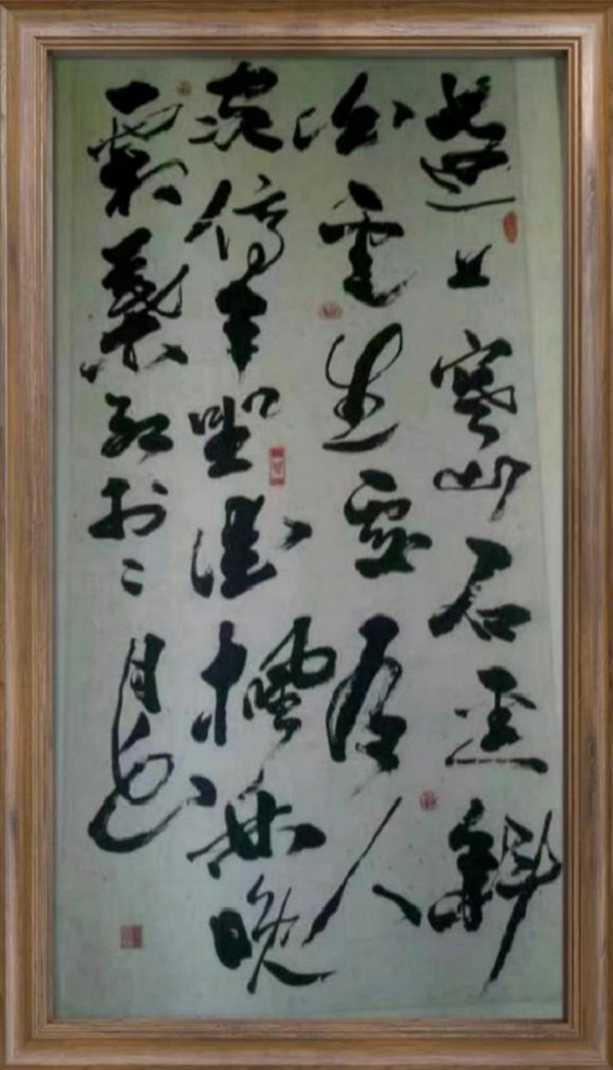 遠上寒山石徑斜
白雲生處有人
家停車坐愛楓林晚
霜葉紅於二月花